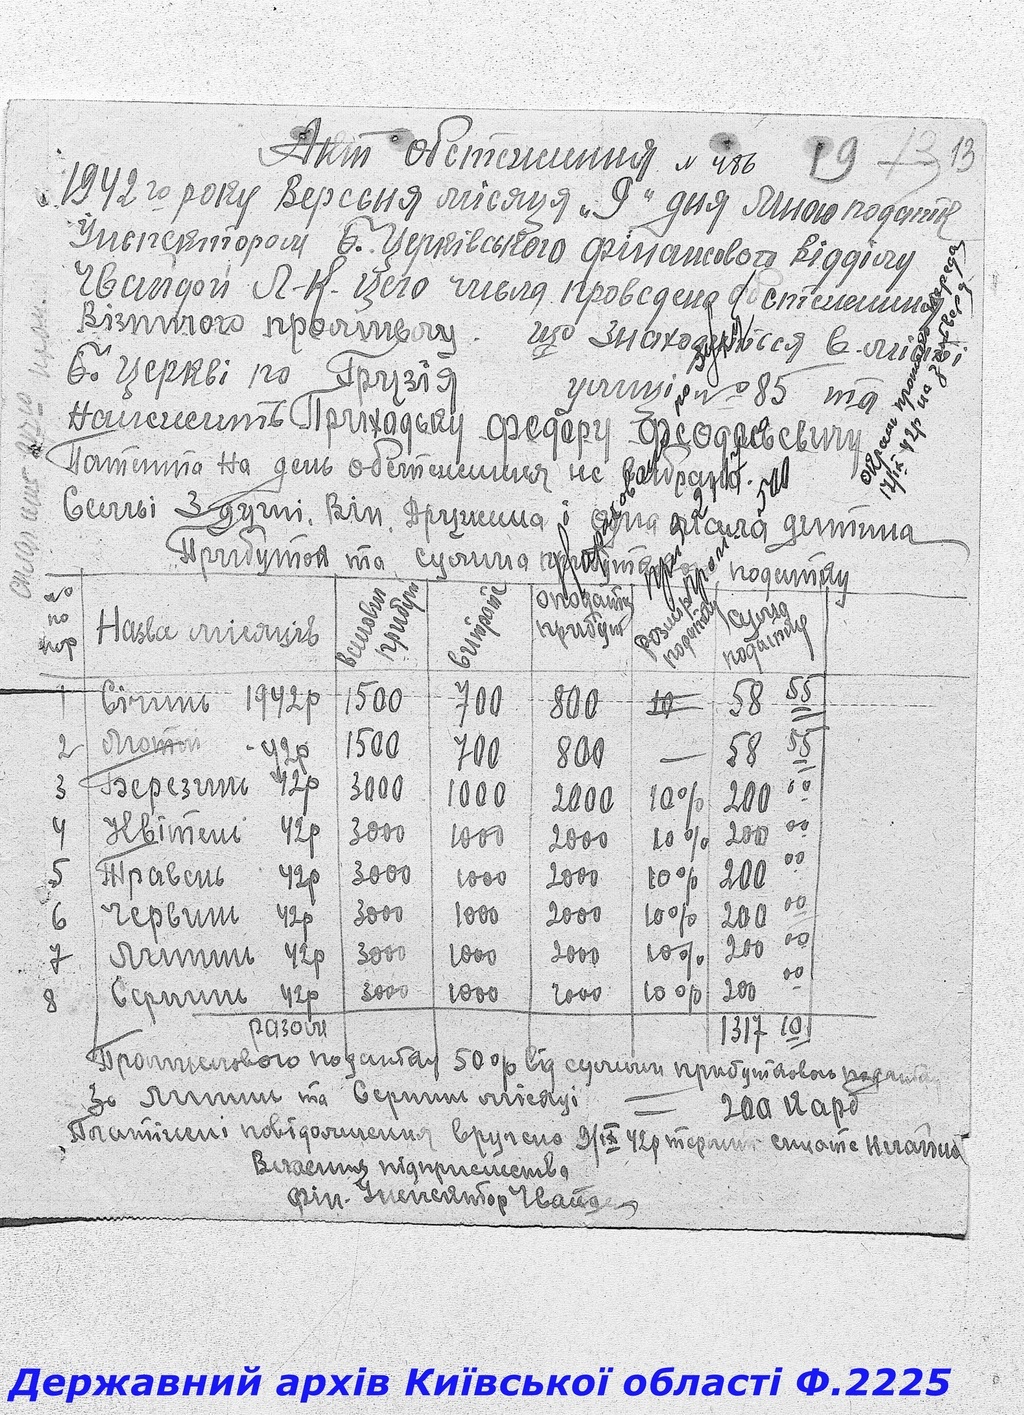 Акт обстеження № 486 19 13 13
1942 го року Вересня місяця „9" дня Мною податк
Інспектором Б. Церківського фінансового відділу
Чвандой Л-К. Цего числа проведена обстеження
Візничого промислу. що знаходится в місті
Б. Церкві по Грузія улиці № 85 та
Належить Приходьку Федору Феодосьевичу
Патента на день обстеження не
Семьі 3 душі. Він, Дружина і одна мала дитина
Прибуток та сумма податку
№ по пор
Назва місяців
валовий прибут
витрати
оподатк прибут
розмір податку
сума податку
1 Січинь 1942р 1500 700 800 10 58 55
2 Лютий 42р 1500 700 800 — 58 55
3 Березинь 42р 3000 1000 2000 10% 200 00
4 Квітень 42р 3000 1000 2000 10% 200 00
5 Травень 42р 3000 1000 2000 10% 200 00
6 Червинь 42р 3000 1000 2000 10% 200 00
7 Липинь 42р 3000 1000 2000 10% 200 00
8 Серпинь 42р 3000 1000 2000 10% 200 00
разом 1317 10
Промислового податку 50% від сумми прибуткового податку
За Липинь та Серпинь місяці = 200 карб
Платіжні повідомлення вручено 9/IX 42р термін сплати негайно
Власник підприємства
Фін. Інспектор Чванда
Державний архів Київської області Ф.2225